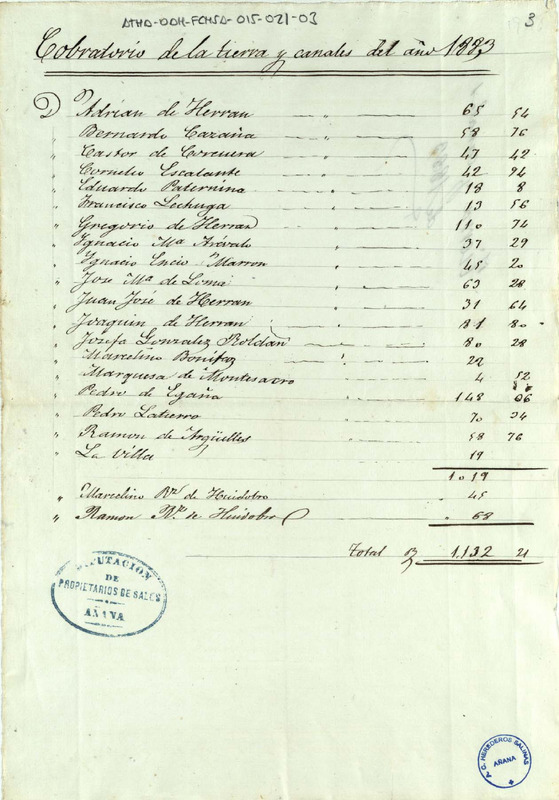 ATHA-DAH-FCMSA-015-021-03
3
Cobratorio de la tierra y canales del año 1883
D Adrian de Herran — „ — 65 54
„ Bernardo Cazaña — „ — 58 76
„ Castor de Corcuera — „ — 47 42
„ Cornelio Escalante — „ — 42 94
„ Eduardo Paternina — „ — 18 8
„ Francisco Lechuga — „ — 13 56
„ Gregorio de Herran — „ — 110 74
„ Ignacio Mª Arévalo — „ — 37 29
„ Ignacio Encio Marron — „ — 45 20
„ Jose Mª de Loma — „ — 63 28
„ Juan José de Herran — „ — 31 64
„ Joaquin de Herran — „ — 81 80
„ Josefa Gonzalez Roldán — „ — 80 28
„ Marcelino Bonifaz — „ — 22
„ Marquesa de Montesacro — „ — 4 52
„ Pedro de Egaña — „ — 148 06
„ Pedro Laterro — „ — 70 34
„ Ramon de Argüelles — „ — 58 76
„ La Villa — „ — 19
1019
„ Marcelino Rz de Huidobro „ 45
„ Ramon Rz de Huidobro „ 68
Total 1,132 21
DIPUTACION
DE
PROPIETARIOS DE SALES
AÑANA
A. C. HEREDEROS SALINAS
AÑANA